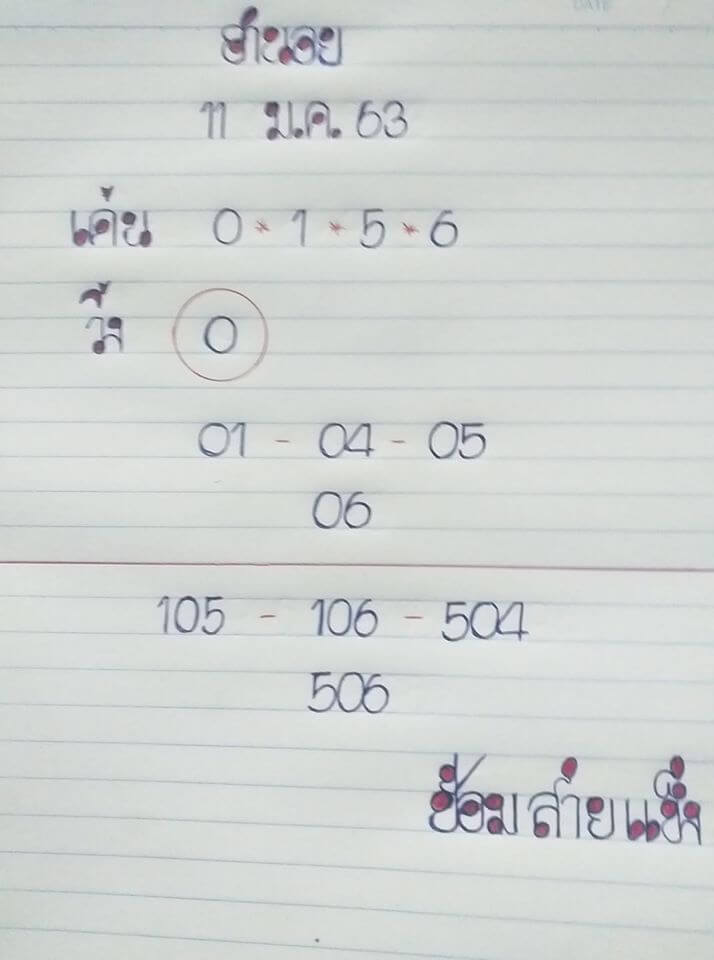 ฮานอย
11 ม.ค. 63
เด่น 0 * 1 * 5 * 6
วิ่ง 0
01 - 04 - 05
06
105 - 106 - 504
506
ส่าย
DATE